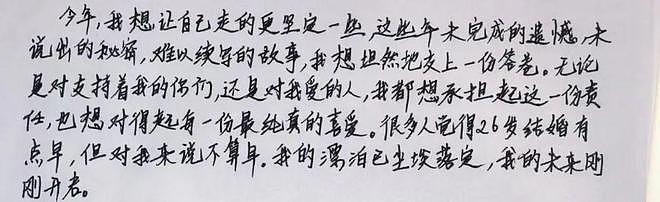 今年,我想让自己走的更坚定一些,这些年未完成的遗憾,未
说出的秘密,难以续写的故事,我想坦然地交上一份答卷。无论
是对支持着我的你们,还是对我爱的人,我都想承担起这一份责
任,也想对得起每一份最纯真的喜爱。很多人觉得26岁结婚有
点早,但对我来说不算早。我的漂泊已尘埃落定,我的未来刚
刚开卷。